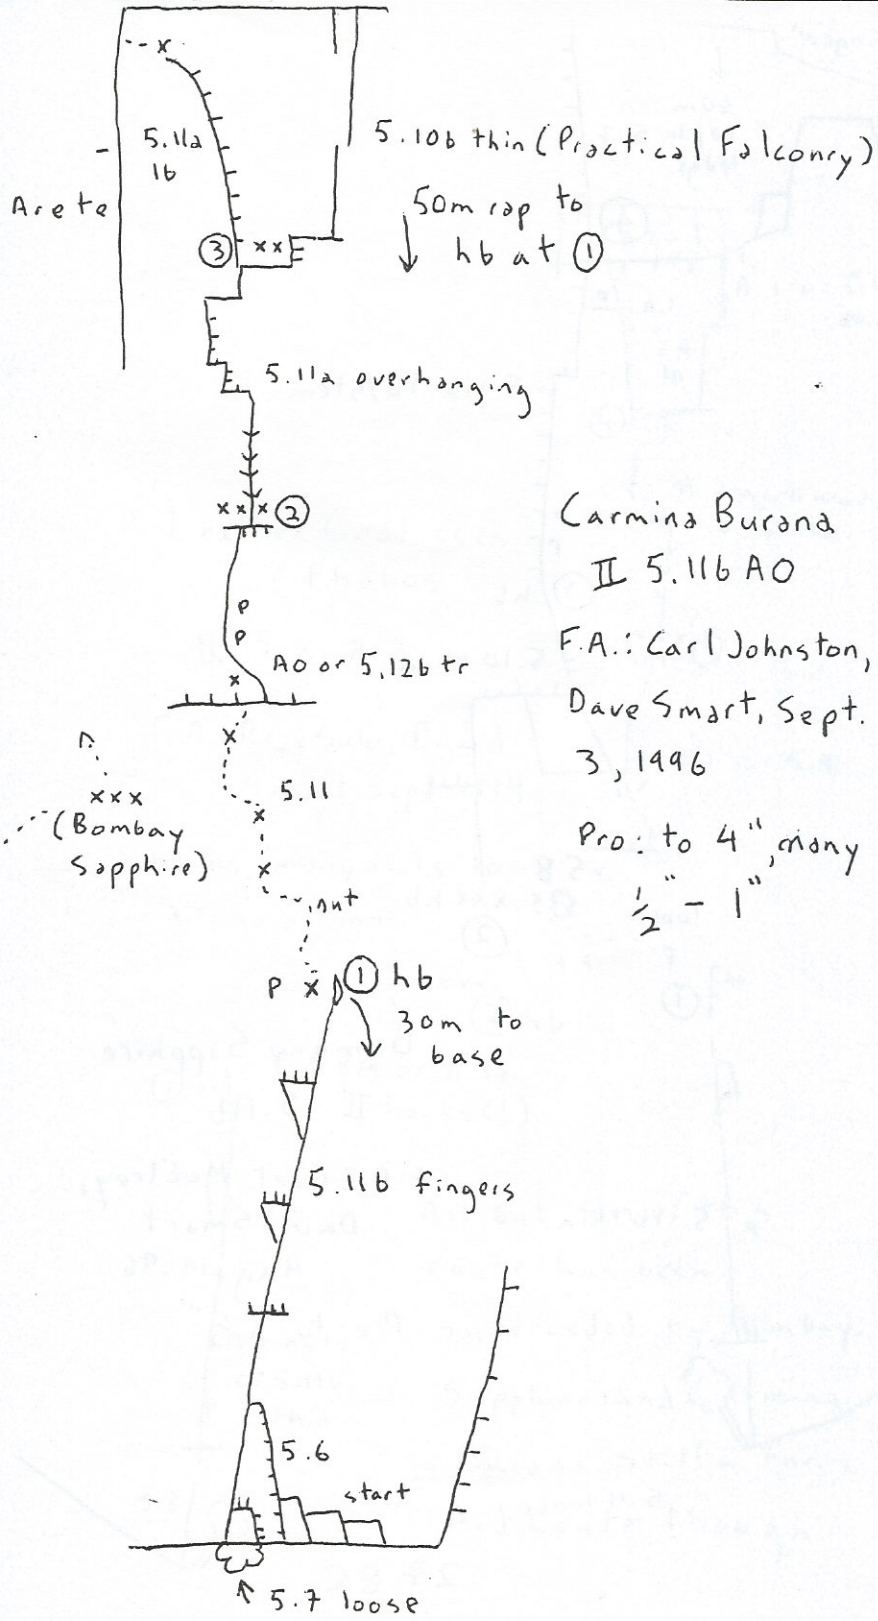 5.11a
1b
Arete
5.10b thin (Practical Falconry)
50m rap to
hb at ①
③ x x
5.11a overhanging
x x x ②
P
P
A0 or 5.12b tr
x
x
5.11
x
x
nut
x x x
(Bombay
Sapphire)
P x ① hb
30m to
base
5.11b fingers
5.6
start
5.7 loose
Carmina Burana
II 5.11b A0
F.A.: Carl Johnston,
Dave Smart, Sept.
3, 1996
Pro: to 4", many
1/2" - 1"